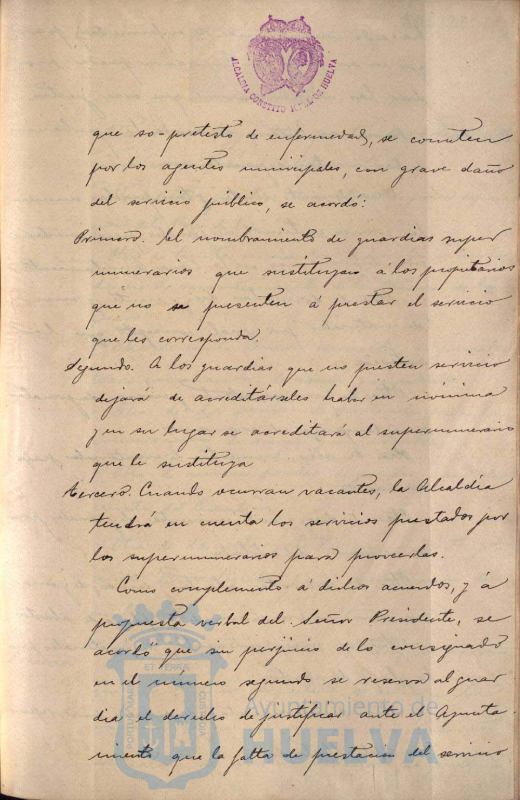 ALCALDIA CONSTITUCIONAL DE HUELVA
que so-pretesto de enfermedad, se cometen
por los agentes municipales, con grave daño
del servicio público, se acordó:
Primero. El nombramiento de guardias super
numerarios que sustituyan á los propietarios
que no se presenten á prestar el servicio
que les corresponda.
Segundo. A los guardias que no presten servicio
dejará de acreditárseles haber en nómina
y en su lugar se acreditará al supernumerario
que le sustituya
Tercero. Cuando ocurran vacantes, la Alcaldía
tendrá en cuenta los servicios prestados por
los supernumerarios para proveerlas.
Como complemento á dichos acuerdos, y á
propuesta verbal del Señor Presidente, se
acordó que sin perjuicio de lo consignado
en el número segundo se reserva al guar
dia el derecho de justificar ante el Ayunta
miento que la falta de prestación del servicio
Ayuntamiento de
HUELVA